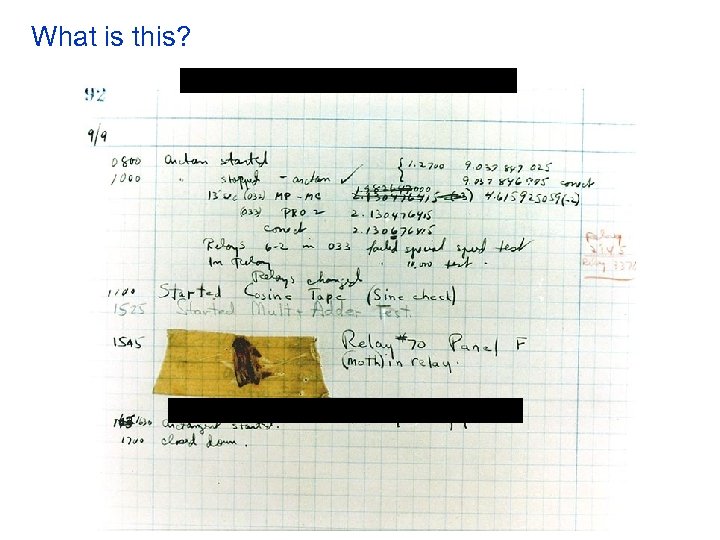 What is this?
92
9/9
0800 arctan started { 1.2700 9.037 847 025
1000 " stopped - arctan ✓ { 9.037 846 995 correct
13" uc (032) MP - MC 2.130476415 (-3) 4.615925059(-2)
(033) PRO 2 2.130476415
correct 2.130676415
Relays 6-2 in 033 failed special speed test
In Relay 10,000 test.
Relay
2145
Relay 3370
Relays changed
1100 Started Cosine Tape (Sine check)
1525 Started Mult + Adder Test.
1545 Relay #70 Panel F
(moth) in relay.
1630 arctangent started.
1700 closed down.